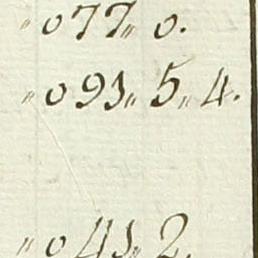 〃 077〃 0.
〃 093〃 5〃 4.
〃 043〃 2.